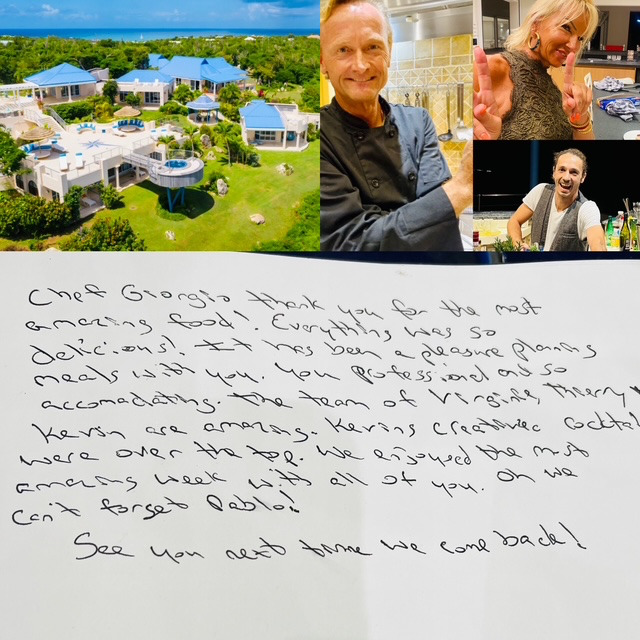 Chef Giorgio thank you for the most
amazing food! Everything was so
delicious! It has been a pleasure planning
meals with you. You professional and so
accomadating. The team of Virginie, Thierry
Kevin are amazing. Kevins creative cocktail
were over the top. We enjoyed the most
amazing week with all of you. Oh we
can't forget Pablo!
See you next time we come back!